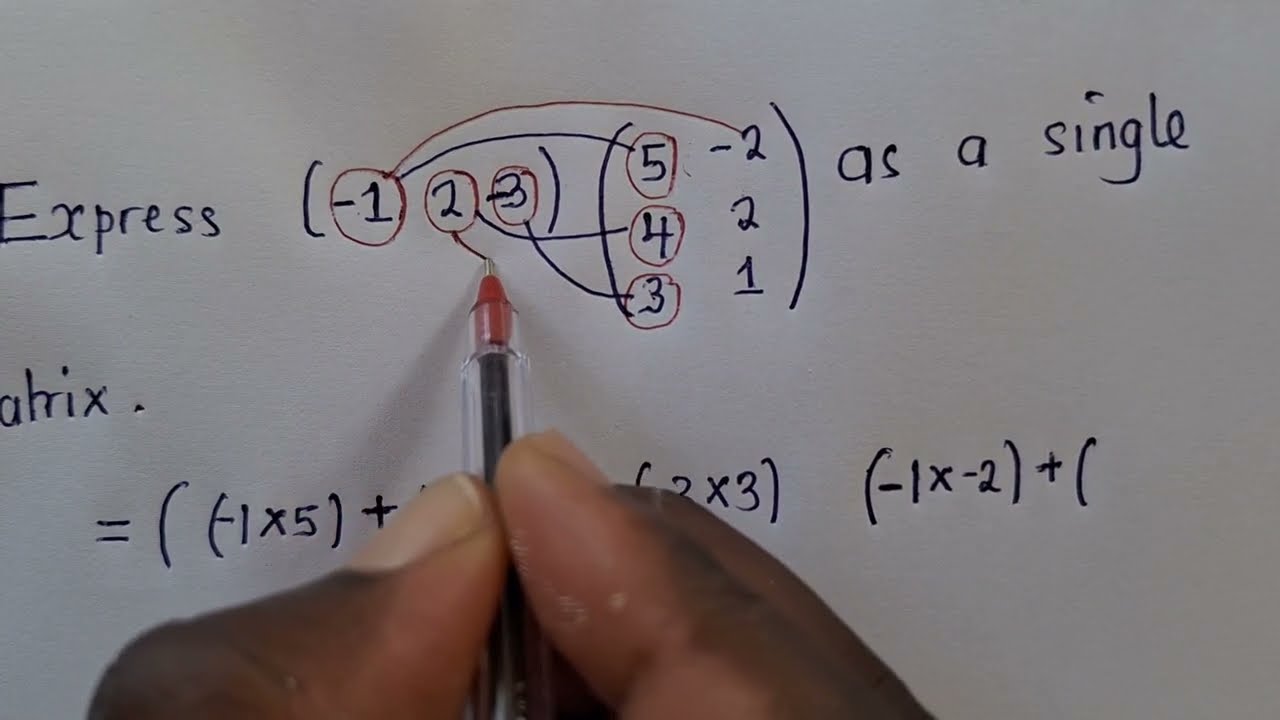 Express (-1 2 -3) (5 -2
4 2
3 1) as a single
atrix.
= ( (-1x5) + x3) (-1x-2) + (